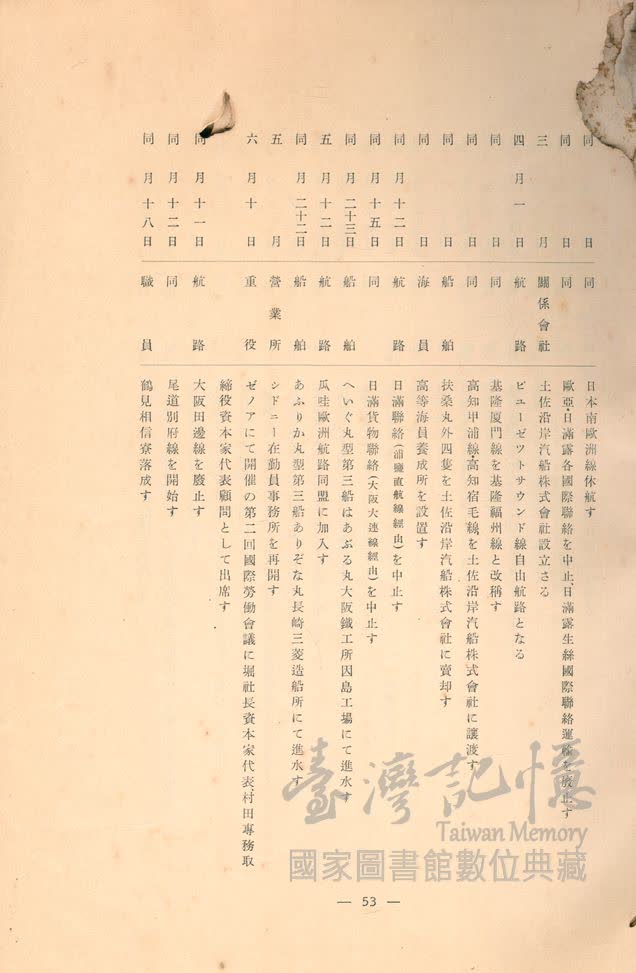 同 日 同 日本南歐洲線休航す
同 日 同 歐亞・日滿露各國際聯絡を中止、日滿露生絲國際聯絡運輸を廢止す
三 月 關係會社 土佐沿岸汽船株式會社設立さる
四月一日 航路 ピユーゼツトサウンド線自由航路となる
同 日 同 基隆厦門線を基隆福州線と改稱す
同 日 同 高知甲浦線・高知宿毛線を土佐沿岸汽船株式會社に讓渡す
同 日 船舶 扶桑丸外四隻を土佐沿岸汽船株式會社に賣却す
同 日 海員 高等海員養成所を設置す
同月十二日 航路 日滿聯絡(浦鹽直航線經由)を中止す
同月十五日 同 日滿貨物聯絡(大阪大連線經由)を中止す
同月二十三日 船舶 へいぐ丸型第三船はあぶる丸大阪鐵工所因島工場にて進水す
五月十二日 航路 瓜哇歐洲航路同盟に加入す
同月二十二日 船舶 あふりか丸型第三船ありぞな丸長崎三菱造船所にて進水す
五 月 營業所 シドニー在勤員事務所を再開す
六月十日 重役 ゼノアにて開催の第二回國際勞働會議に堀社長資本家代表、村田專務取
締役資本家代表顧問として出席す
同月十一日 航路 大阪田邊線を廢止す
同月十二日 同 尾道別府線を開始す
同月十八日 職員 鶴見相信寮落成す
— 53 —
臺灣記憶
Taiwan Memory
國家圖書館數位典藏